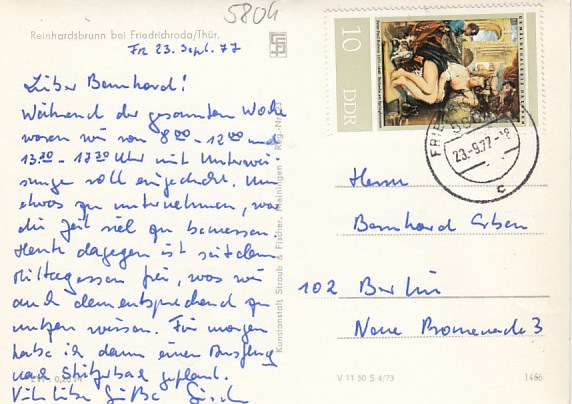 5804
Reinhardsbrunn bei Friedrichroda/Thür.
Fr 23. Sept. 77
Lieber Bernhard!
Während der gesamten Woche
waren wir von 8⁰⁰ - 12⁰⁰ und
13³⁰ - 17³⁰ Uhr mit Unterwei-
sungen voll eingedeckt. Um
etwas zu unternehmen, war
die Zeit viel zu bemessen.
Heute dagegen ist seit dem
Mittagessen frei, was wir
auch dementsprechend zu
nutzen wissen. Für morgen
habe ich dann einen Ausflug
nach Stützerbach geplant.
Viele liebe Grüße
Kunstanstalt Straub & Fischer, Meiningen
10
DDR
23.-9.77-18
c
Herrn
Bernhard Erben
102 Berlin
Neue Promenade 3
V 11 50 S 4/73
1466